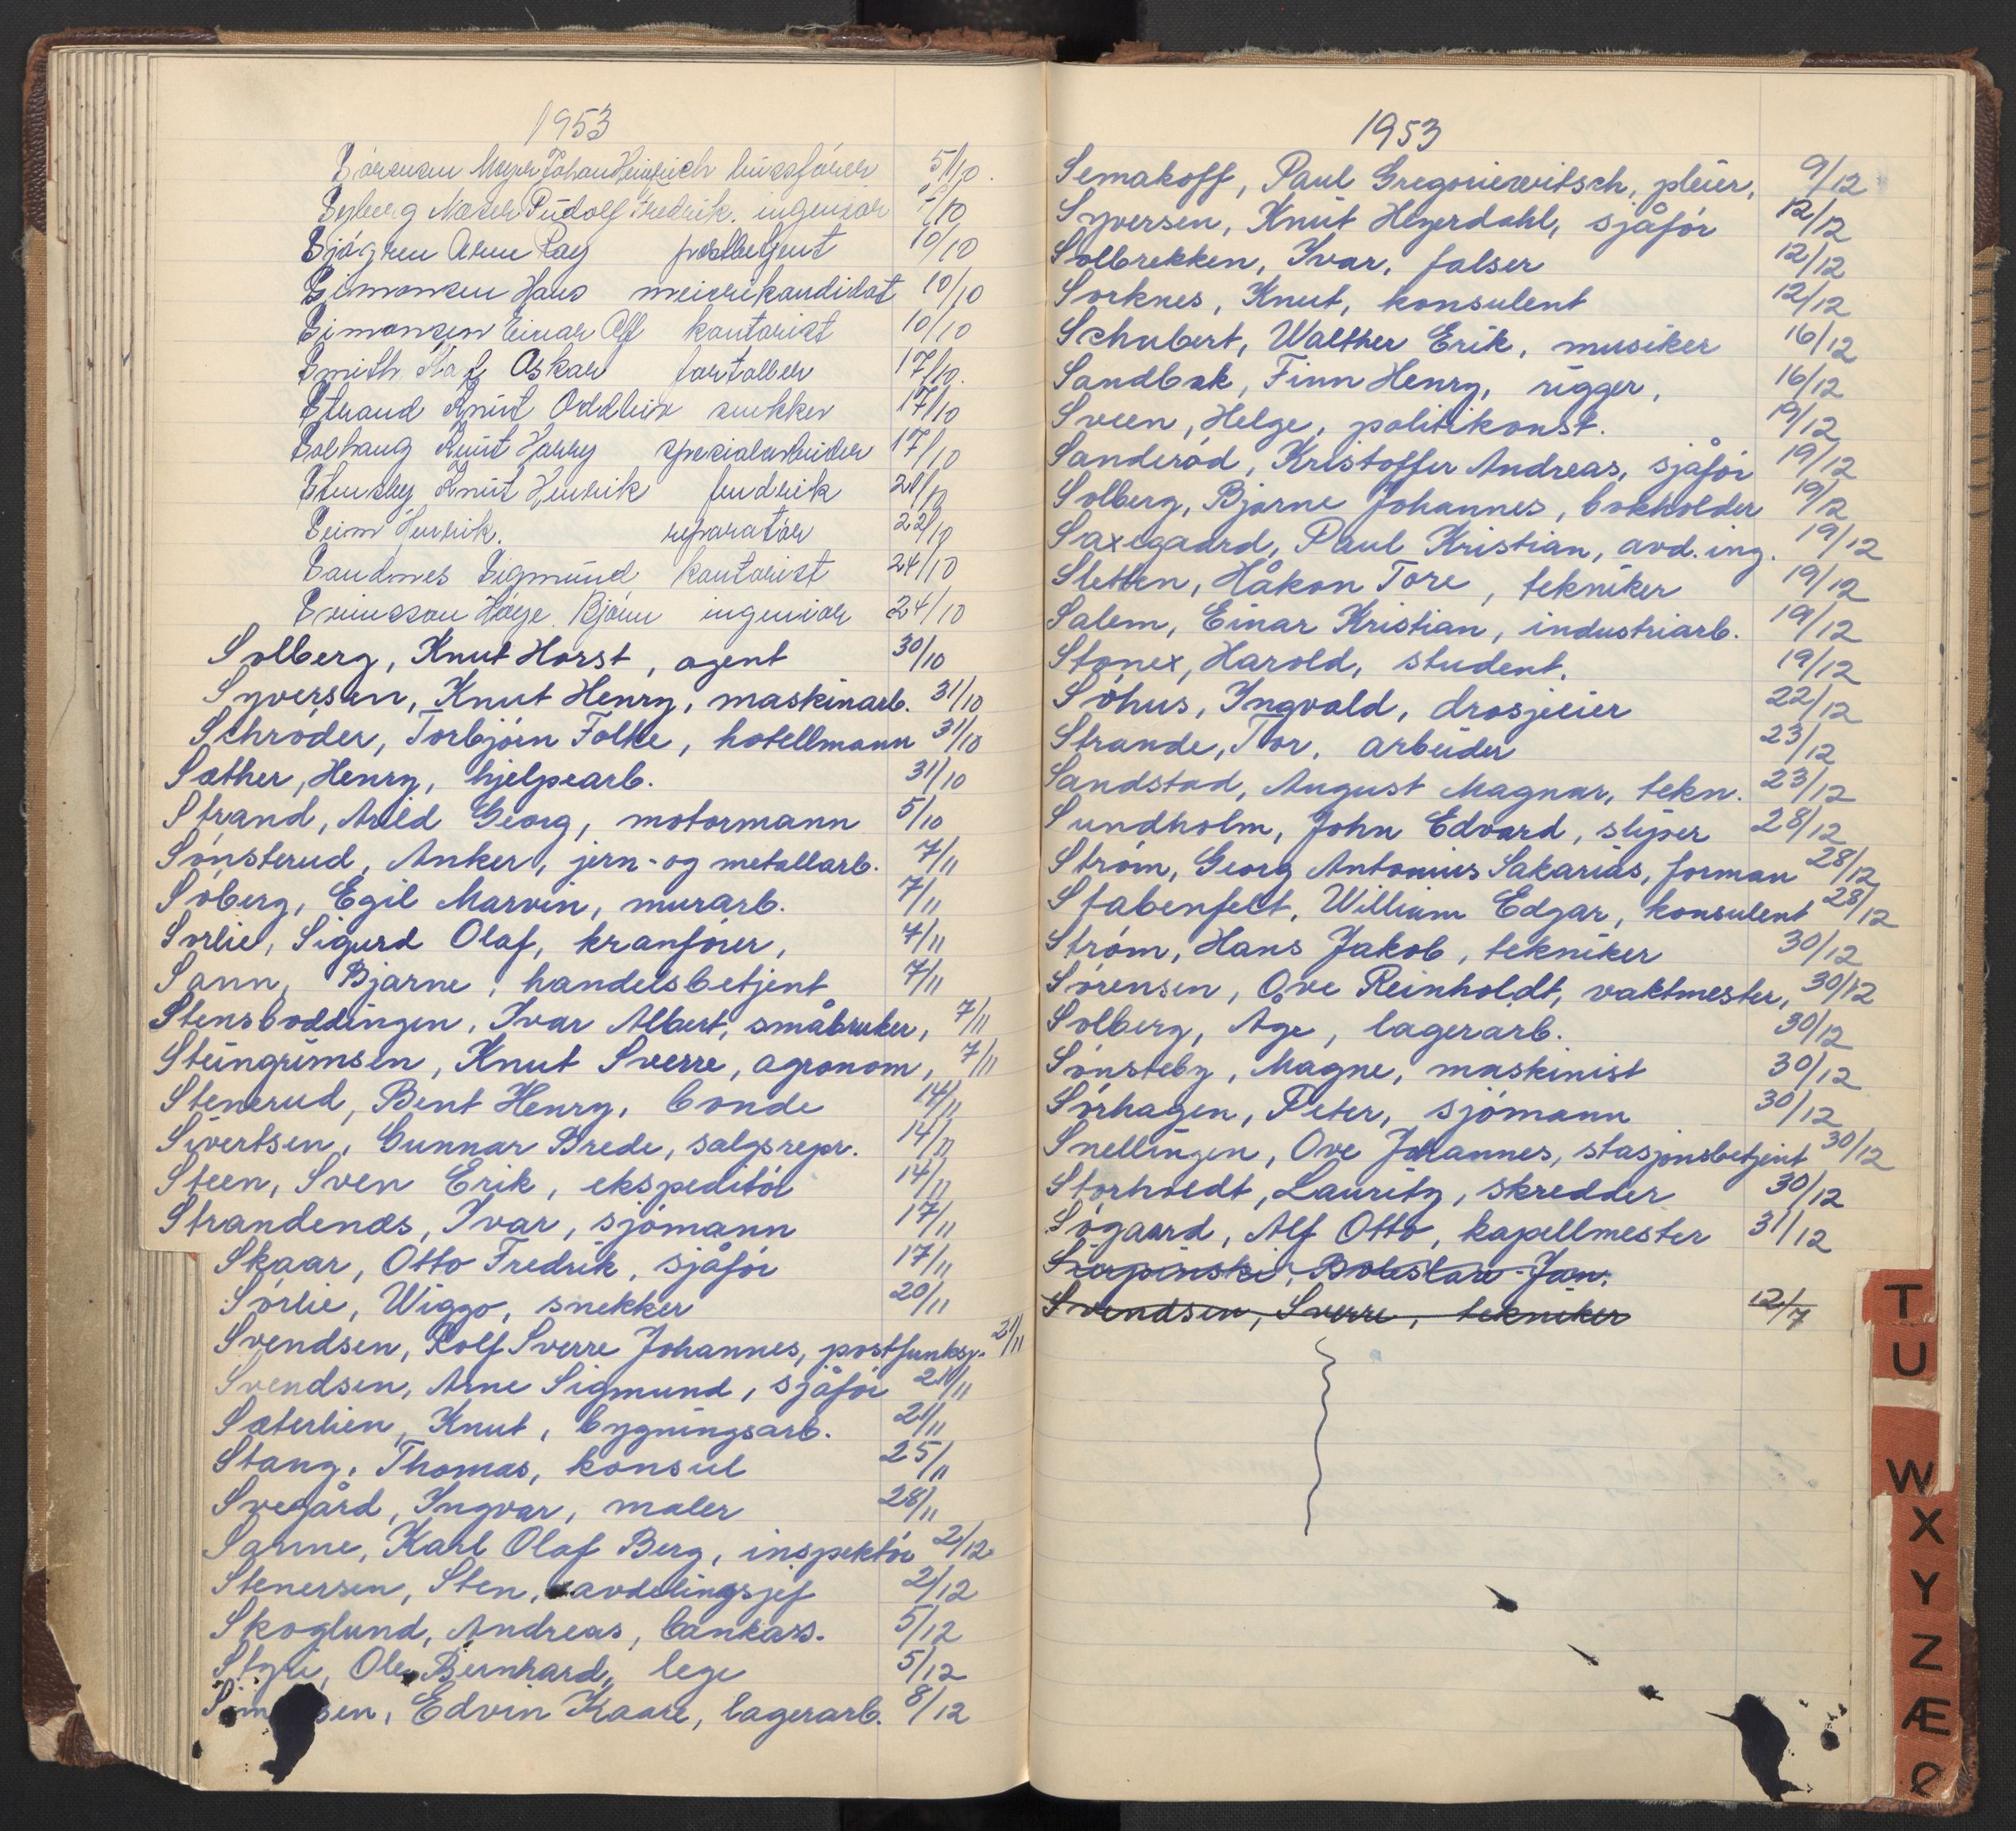 1953
Sörensen Meyer Johan Heinrich 5/10.
Syberg Rudolf Fredrik. ingeniör /10
Sjögren Arne Roy postbetjent 10/10
Simonsen Hans meierikandidat 10/10
Simonsen Einar Alf kontorist 10/10
Smith Oskar fortoller 17/10.
Strand Knut Oddleiv snekker 17/10
Solhaug Knut Harry spesialarbeider 17/10
Stensby Knut Henrik fendrik 20/10
Seim Henrik. reparatör 22/10
Sandnes Sigmund kontorist 24/10
Björn ingeniör 24/10
Solberg, Knut Horst, agent 30/10
Syversen, Knut Henry, maskinarb. 31/10
Schröder, Torbjörn Folke, hotellmann 31/10
Sæther, Henry, hjelpearb. 31/10
Strand, Arild Georg, motormann 5/10
Sönsterud, Anker, jern- og metallarb. 7/11
Söberg, Egil Marvin, murarb. 7/11
Sörlie, Sigurd Olaf, kranförer, 7/11
Sann, Bjarne, handelsbetjent 7/11
Stensboddingen, Ivar Albert, småbruker, 7/11
Steingrimsen, Knut Sverre, agronom, 7/11
Stenerud, Bent Henry, bonde 14/11
Sivertsen, Gunnar Brede, salgsrepr. 14/11
Steen, Sven Erik, ekspeditör 14/11
Strandenæs, Ivar, sjömann 17/11
Skaar, Otto Fredrik, sjåför 17/11
Sörlie, Wiggo, snekker 20/11
Svendsen, Rolf Sverre Johannes, postfunksj. 21/11
Svendsen, Arne Sigmund, sjåför 21/11
Sæterlien, Knut, bygningsarb. 21/11
Stang, Thomas, konsul 25/11
Svegård, Ingvar, maler 28/11
Sanne, Karl Olaf Berg, inspektör 2/12
Stenersen, Sten, avdelingsjef 2/12
Skoglund, Andreas, bankass. 5/12
Styri, Ole Bernhard, lege 5/12
Edvin Kaare, lagerarb. 8/12
1953
Semakoff, Paul Gregoriewitsch, pleier, 9/12
Syversen, Knut Heyerdahl, sjåför 12/12
Solbrekken, Ivar, falser 12/12
Sorknes, Knut, konsulent 12/12
Schubert, Walther Erik, musiker 16/12
Sandbak, Finn Henry, rigger, 16/12
Sveen, Helge, politikonst. 19/12
Sanderöd, Kristoffer Andreas, sjåför 19/12
Solberg, Bjarne Johannes, bokholder 19/12
Saxegaard, Paul Kristian, avd. ing. 19/12
Sletten, Håkon Tore, tekniker 19/12
Salem, Einar Kristian, industriarb. 19/12
Stonex, Harold, student, 19/12
Söhus, Ingvald, drosjeeier 22/12
Strande, Tor, arbeider 23/12
Sandstad, August Magnar, tekn. 23/12
Sundholm, John Edvard, sliper 28/12
Ström, Georg Antonius Sakarias, forman 28/12
Stabenfelt, William Edgar, konsulent 28/12
Ström, Hans Jakob, tekniker 30/12
Sörensen, Ove Reinholdt, vaktmester, 30/12
Solberg, Age, lagerarb. 30/12
Sönsteby, Magne, maskinist 30/12
Sörhagen, Peter, sjömann 30/12
Snellingen, Ove Johannes, stasjonsbetjent 30/12
Storholdt, Lauritz, skredder 30/12
Sögaard, Alf Otto, kapellmester 31/12
Sierpinski, Boleslaw Jan.
Svendsen, Sverre, tekniker 12/7
T
U
W
X
Y
Z
Æ
Ø